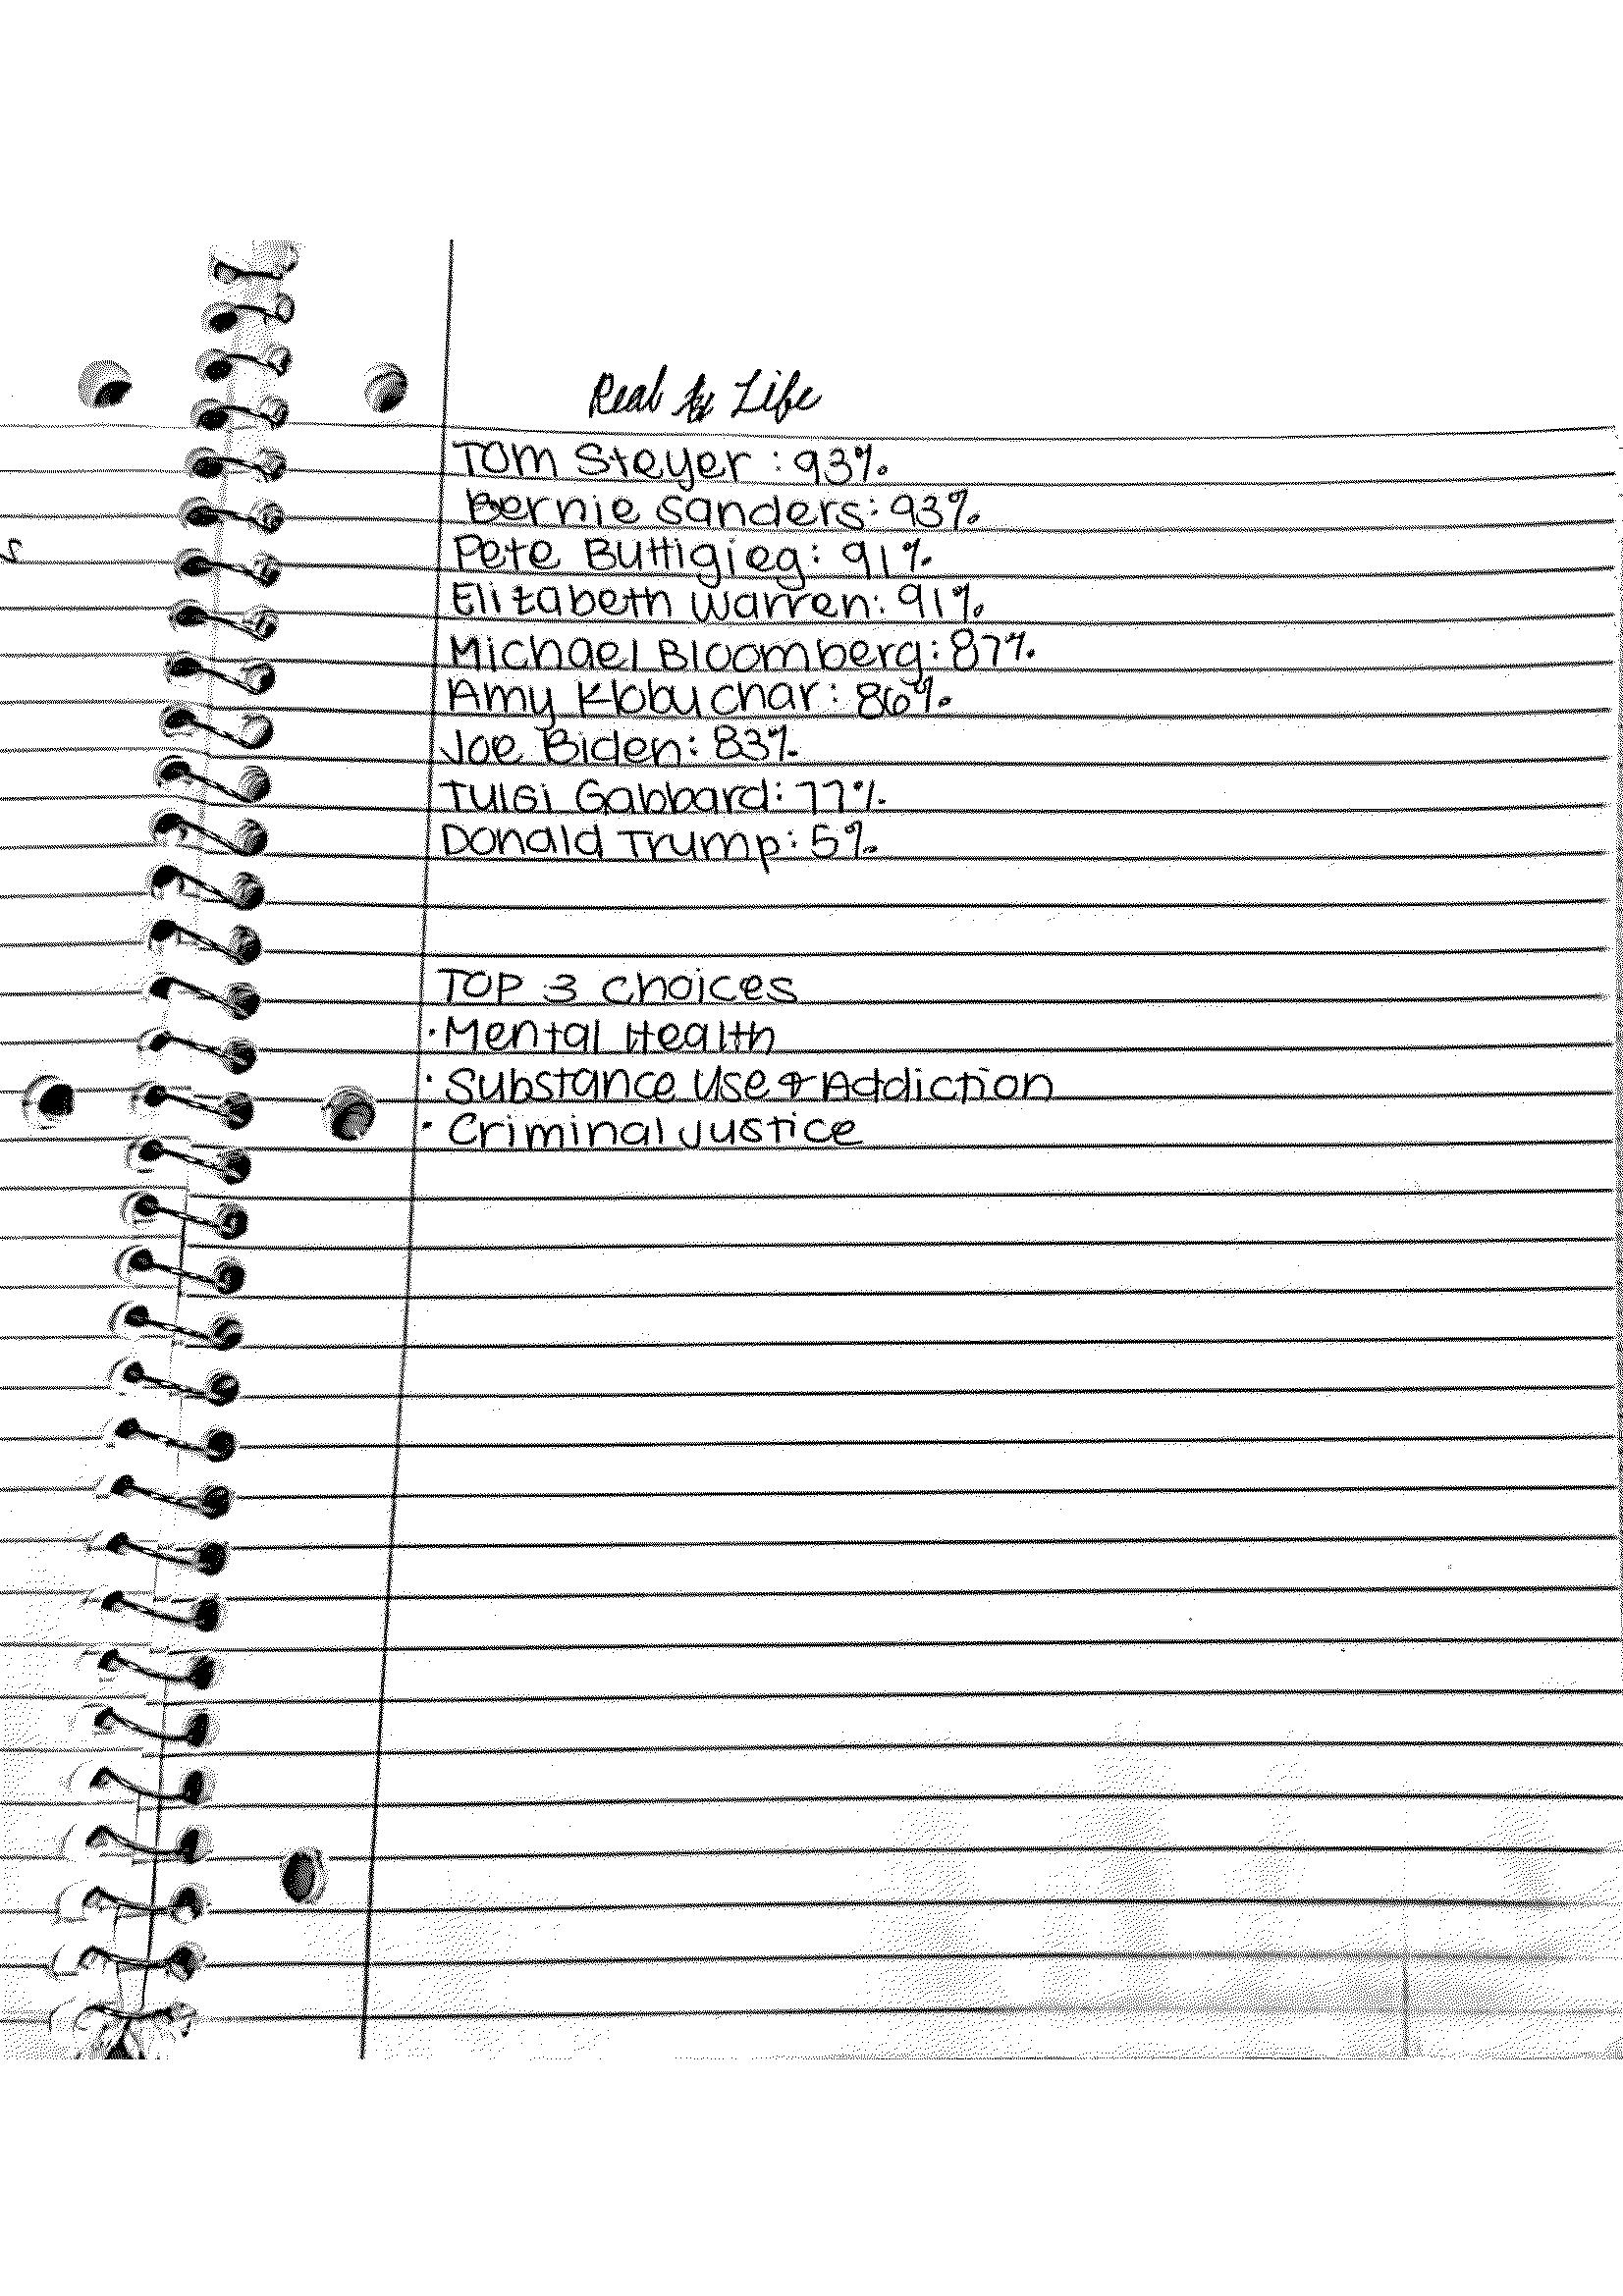 Real Life
Tom Steyer : 93%
Bernie Sanders: 93%
Pete Buttigieg: 91%
Elizabeth Warren: 91%
Michael Bloomberg: 87%
Amy Klobuchar: 86%
Joe Biden: 83%
Tulsi Gabbard: 77%
Donald Trump: 5%
TOP 3 Choices
· Mental Health
· Substance Use & Addiction
· Criminal Justice